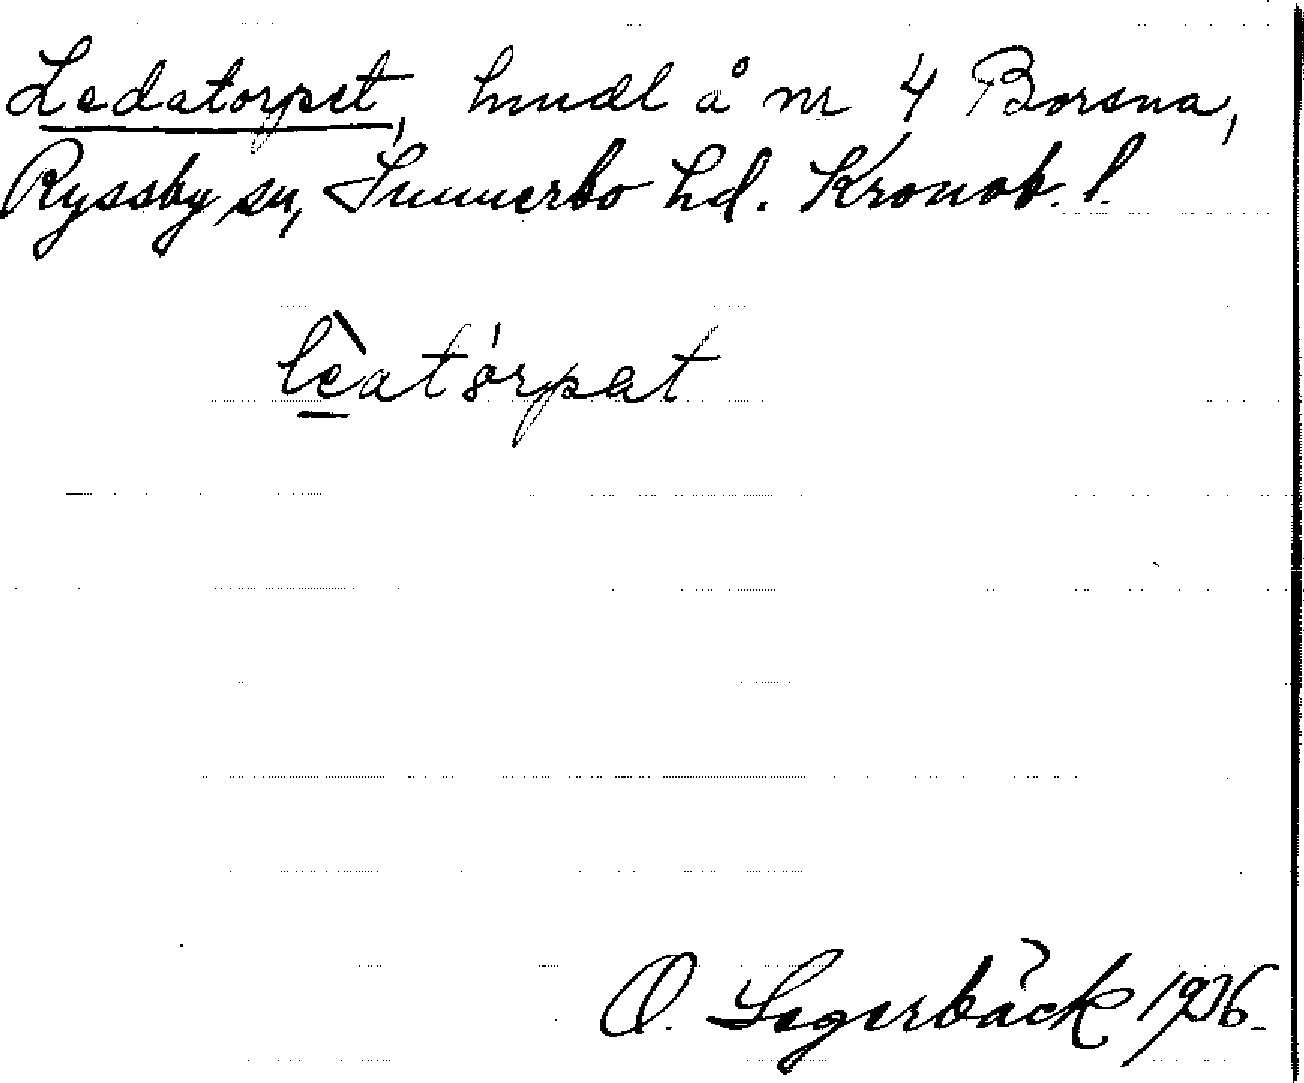 Ledatorpet, hmdl å nr 4 Borsna,
Ryssby sn, Sunnerbo hd. Kronob. l.
lèatórpat
O. Segerbäck 1936.